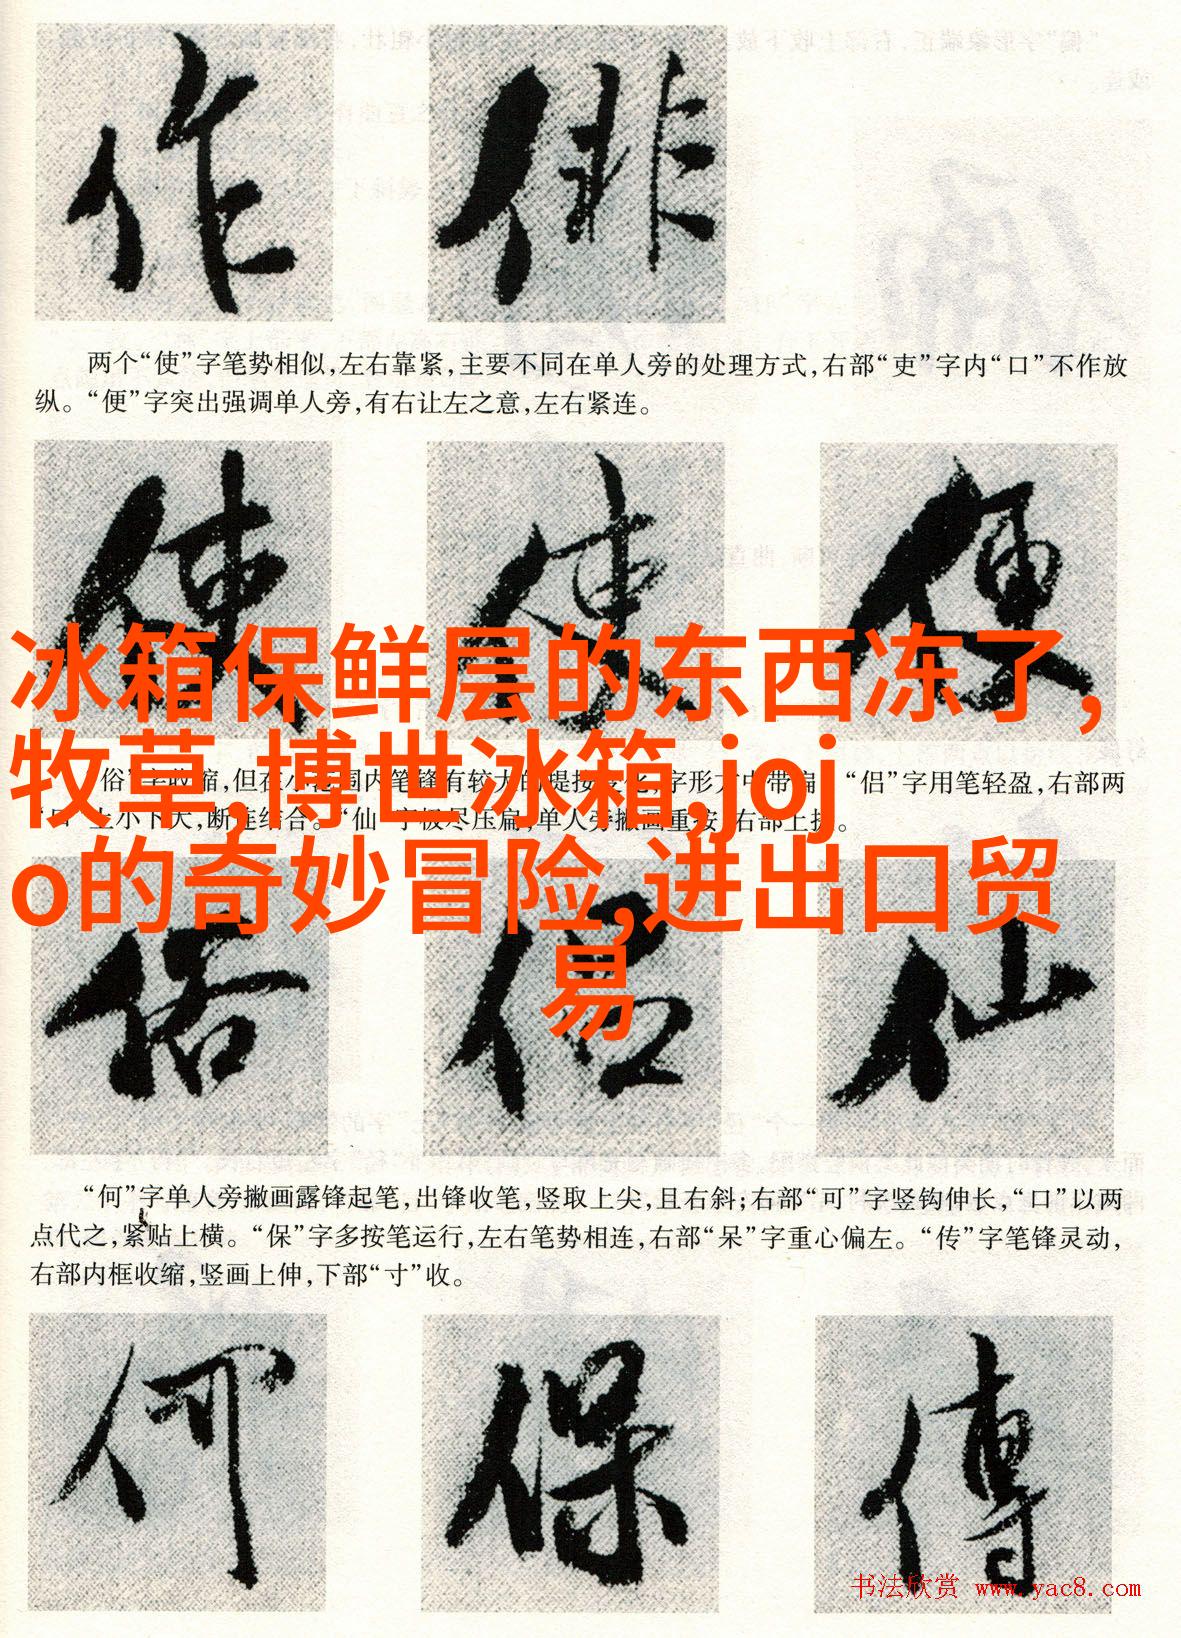 作 俳
两个“使”字笔势相似,左右靠紧,主要不同在单人旁的处理方式,右部“吏”字内“口”不作放
纵。“便”字突出强调单人旁,有右让左之意,左右紧连。
使 使 便
冰箱保鲜层的东西冻了,
牧草,博世冰箱,joj
o的奇妙冒险,进出口贸
易
俗”字收缩,但在小范围内笔锋有较大的提按变化,字形方中带扁。“侣”字用笔轻盈,右部两
上小下大,断连结合。“仙”字极尽压扁,单人旁撇画重按,右部上扬。
俗 侣 仙
“何”字单人旁撇画露锋起笔,出锋收笔,竖取上尖,且右斜;右部“可”字竖钩伸长,“口”以两
点代之,紧贴上横。“保”字多按笔运行,左右笔势相连,右部“呆”字重心偏左。“传”字笔锋灵动,
右部内框收缩,竖画上伸,下部“寸”收。
何 保 傳
书法欣赏 www.yac8.com